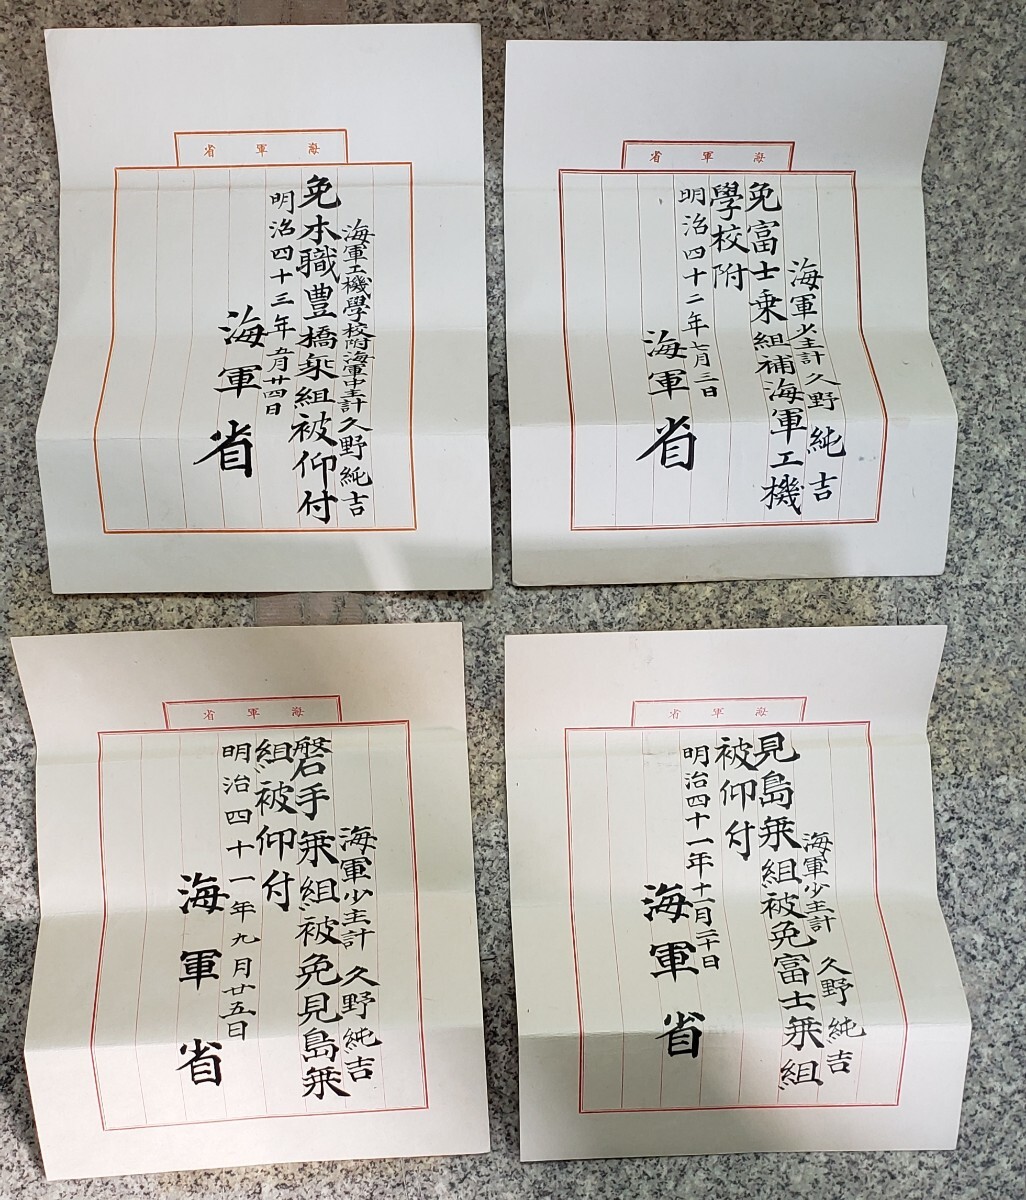 海軍省
海軍工機學校附海軍中主計久野純吉
免本職豊橋乗組被仰付
明治四十三年五月廿四日
海軍省
海軍省
海軍少主計久野純吉
免富士乗組補海軍工機
學校附
明治四十二年七月三日
海軍省
海軍省
海軍少主計久野純吉
磐手乗組被免見島乗
組被仰付
明治四十一年九月廿五日
海軍省
海軍省
海軍少主計久野純吉
見島乗組被免富士乗組
被仰付
明治四十一年十一月二十日
海軍省